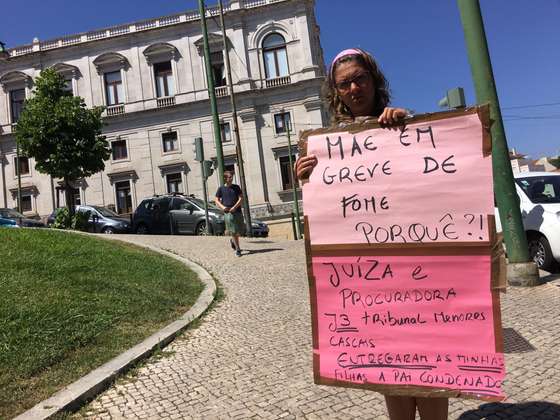 MÃE EM
GREVE DE
FOME
PORQUÊ?!
JUÍZA e
PROCURADORA
J3 tribunal Menores
CASCAIS
ENTREGARAM AS MINHAS
FILHAS A PAI CONDENADO